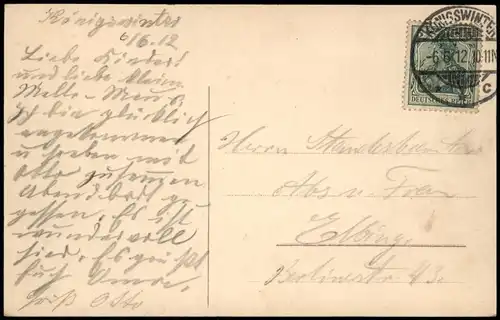 Königswinter
6/6.12
Liebe Kinder!
und liebe kleine
Melle-Maus
Ich bin glücklich
angekommen
u. haben mit
Otto zusammen
Abendbrot ge-
gessen. Es ist
wundervoll
hier. Es grüßt
Euch Oma.
Gruß Otto
KÖNIGSWINTER
-6.6.12.10-11N
C
DEUTSCHES REICH
Herrn Standesbeamter
Abs u. Frau
Elbing.
Berlinerstr. 43.